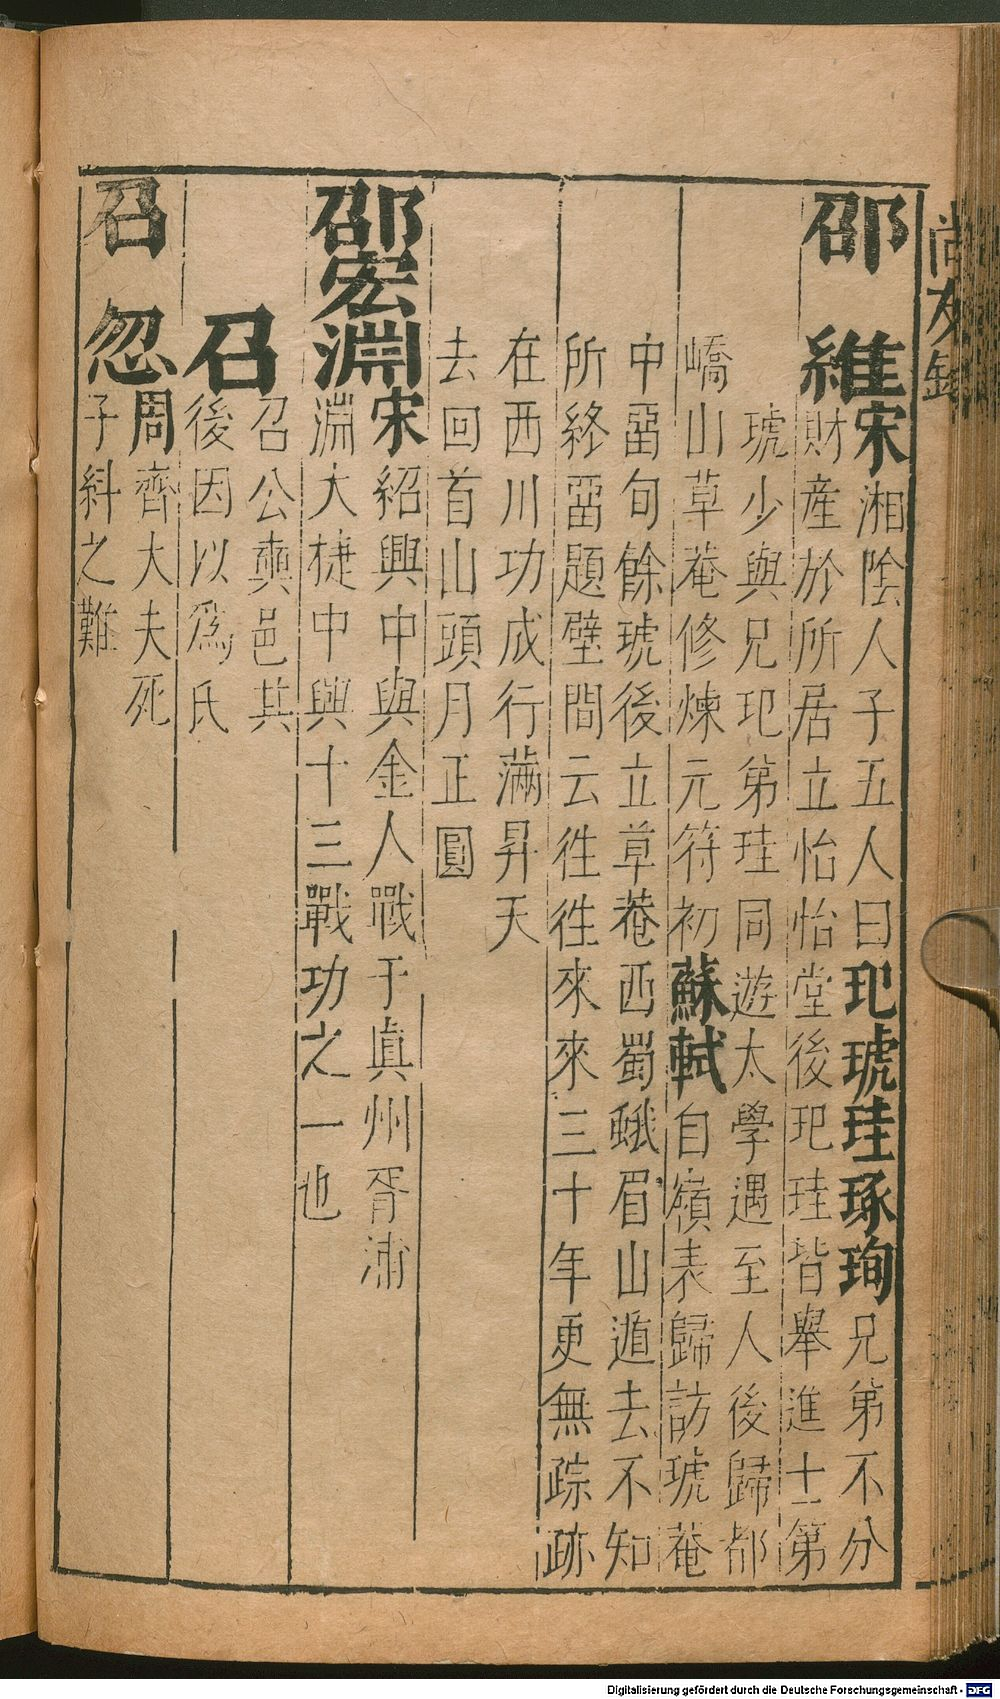 尚友錄
邵維宋湘陰人子五人曰玘琥珪琢珣兄弟不分
財産於所居立怡怡堂後玘珪皆舉進士第
琥少與兄玘第珪同遊太學遇至人後歸都
嶠山草菴修煉元符初蘇軾自嶺表歸訪琥菴
中畱旬餘琥後立草菴西蜀蛾眉山遁去不知
所終畱題壁間云徃徃來來三十年更無踪跡
在西川功成行滿昇天
去回首山頭月正圓
邵宏淵宋紹興中與金人戰于眞州胥浦
淵大捷中興十三戰功之一也
召
召公奭邑其
後因以爲氏
召忽周齊大夫死
子糾之難
Digitalisierung gefördert durch die Deutsche Forschungsgemeinschaft - DFG